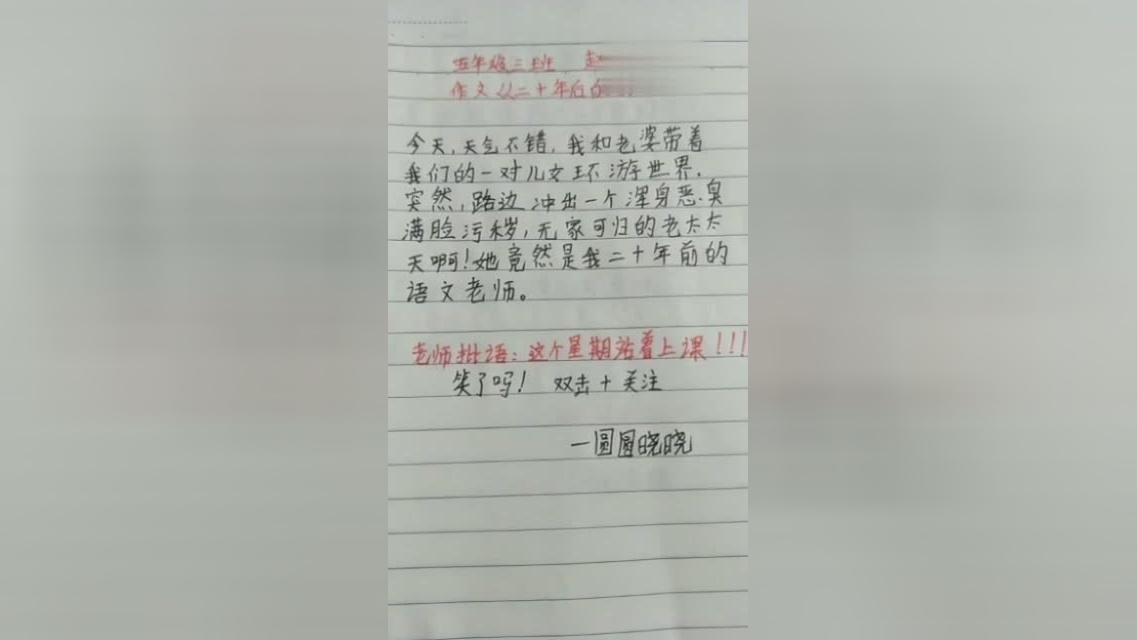 五年级三班 赵
作文《二十年后
今天,天气不错,我和老婆带着
我们的一对儿女环游世界.
突然,路边冲出一个浑身恶臭
满脸污秽,无家可归的老太太
天啊!她竟然是我二十年前的
语文老师。
老师批语:这个星期站着上课!!!
笑了吗! 双击+关注
一圆圆晓晓